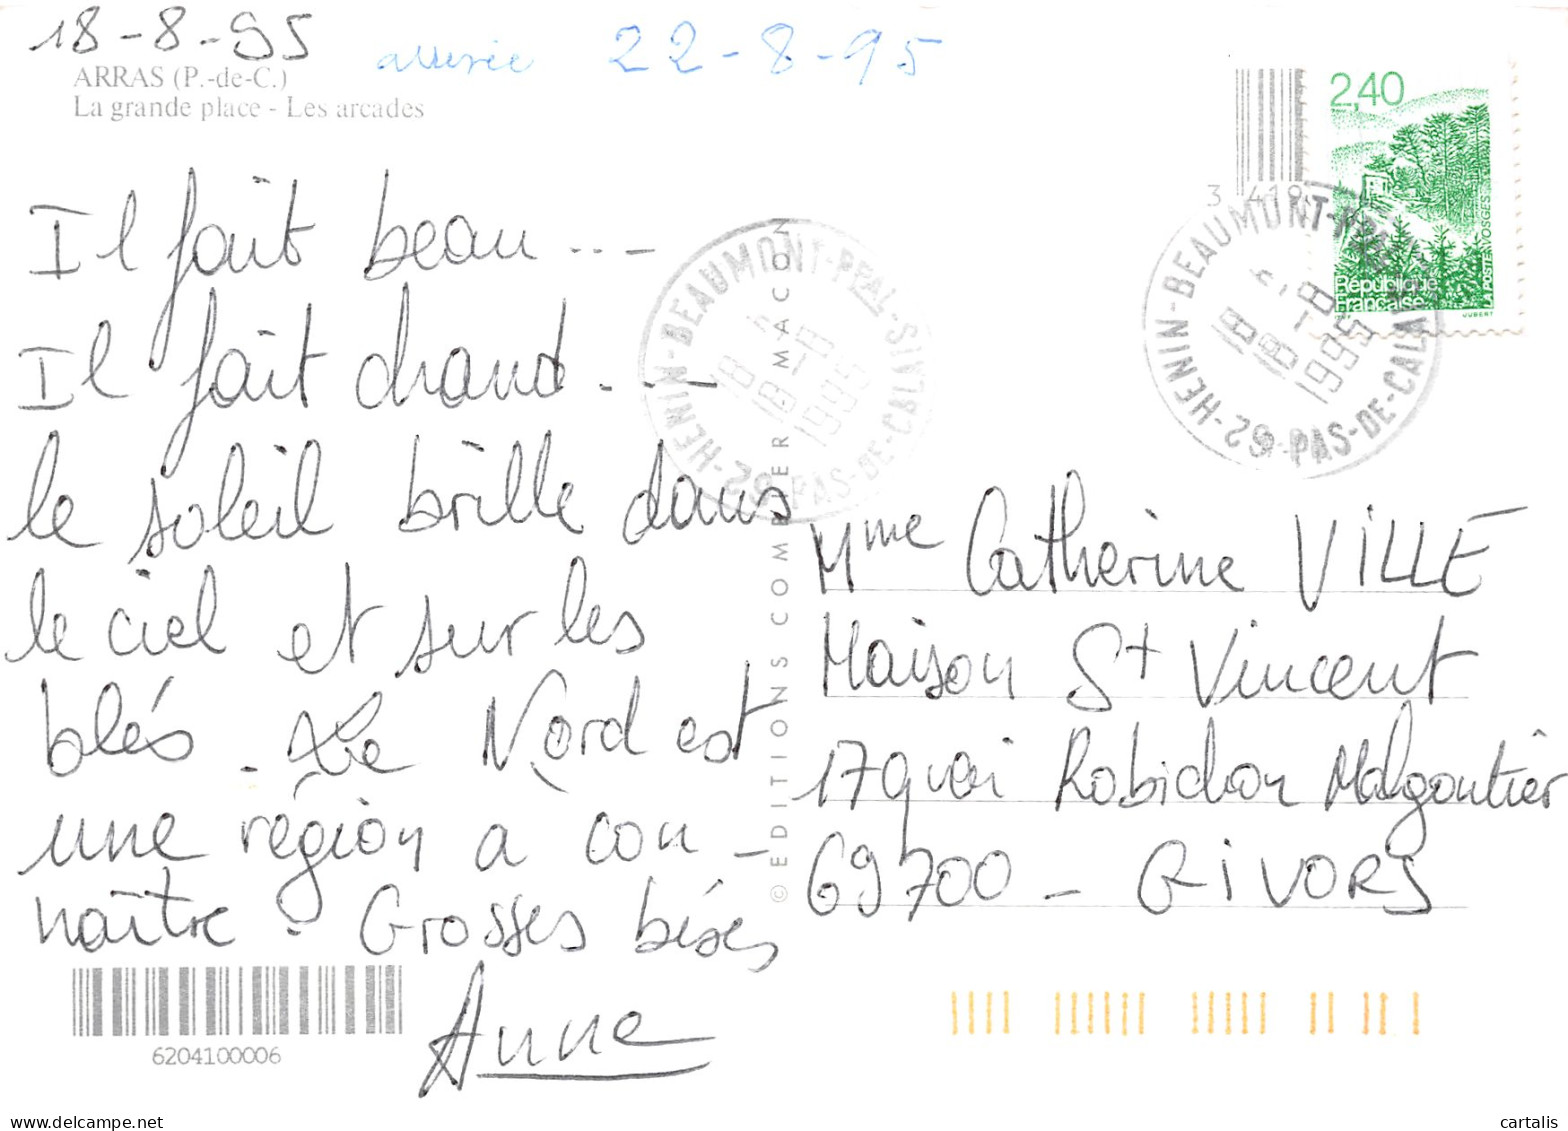 18-8-95
arrivée 22-8-95
ARRAS (P.-de-C.)
La grande place - Les arcades
Il fait beau...
Il fait chaud...
le soleil brille dans
le ciel et sur les
blés. Le Nord est
une région a con-
naître. Grosses bises
Anne
6204100006
© EDITIONS COMBIER MACON
HENIN-BEAUMONT-PPAL-
62-PAS-DE-CALAIS
18H
18-8
1995
3 419
2,40
République
Française
LA POSTE
VOSGES
JUBERT
HENIN-BEAUMONT-PPAL
62-PAS-DE-CALAIS
18H
18-8
1995
Mme Catherine VILLE
Maison St Vincent
17 quai Robichon Malgontier
69700 - GIVORS
cartalis